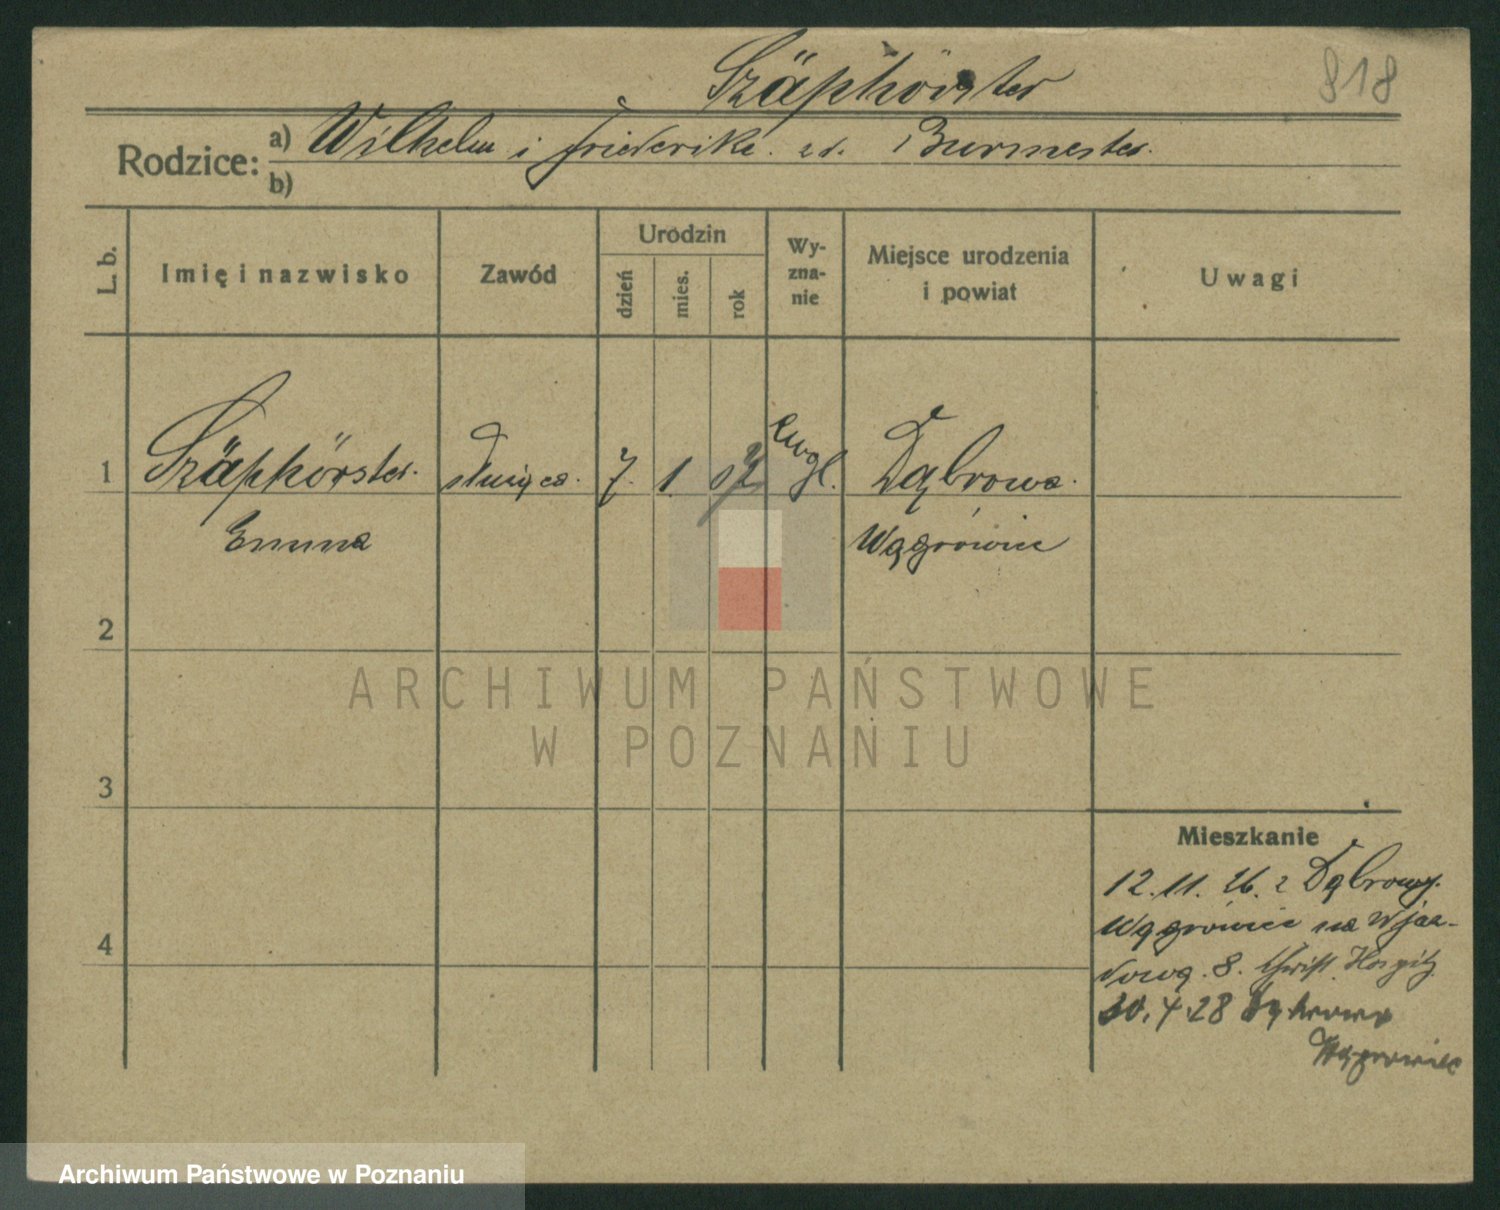 Szäpkörster
818
Rodzice: a) Wilhelm i Friederike zd. Burmester.
b)
L. b.
Imię i nazwisko
Zawód
Urodzin
dzień
mies.
rok
Wy-
zna-
nie
Miejsce urodzenia
i powiat
Uwagi
1 Szäpkörster. służąca. 7. 1. 02 ewgl. Dąbrowa.
Emma Wągrówiec
2
3
4
Mieszkanie
12.11.26. z Dąbrowy.
Wągrówiec na Wjaz-
dową. 8. Christ. Hospitz
30.4.28 Dąbrowa
Wągrowiec
ARCHIWUM PAŃSTWOWE
W POZNANIU
Archiwum Państwowe w Poznaniu